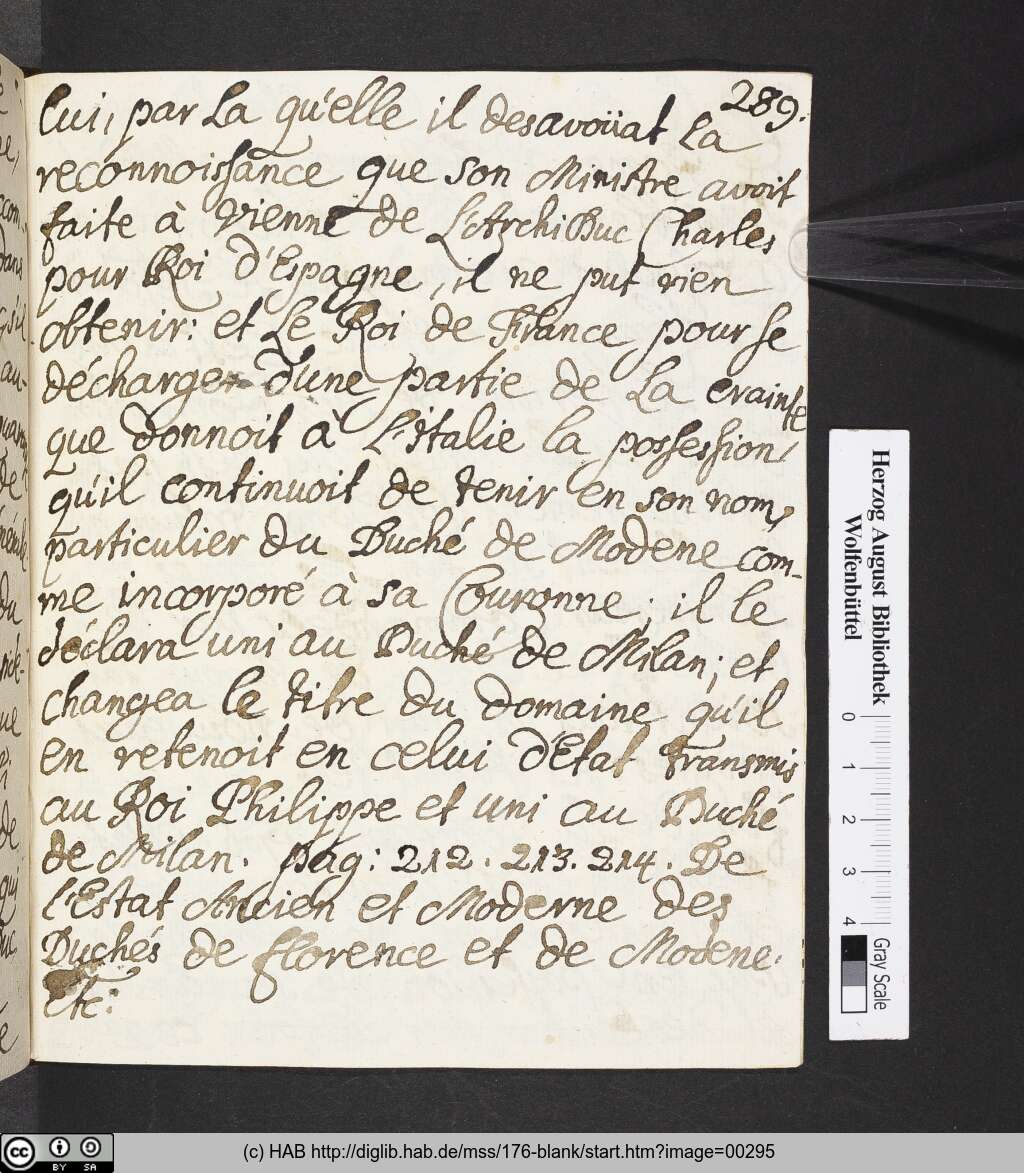 289.
lui, par La qu'elle il desavoüat La
reconnoissance que son Ministre avoit
faite à Vienne de L'ArchiDuc Charles
pour Roi d'Espagne, il ne put rien
obtenir: et Le Roi de France pour se
décharger d'une partie de La crainte
que donnoit à L'Italie la possession,
qu'il continuoit de tenir en son nom,
particulier du Duché de Modene com-
me incorporé à sa Couronne, il le
déclara uni au Duché de Milan; et
changea le titre du domaine qu'il
en retenoit en celui d'Etat transmis
au Roi Philippe et uni au Duché
de Milan. pag: 212. 213. 214. De
l'Estat Ancien et Moderne des
Duchés de florence et de Modene.
Etc:
Herzog August Bibliothek
Wolfenbüttel
0 1 2 3 4
Gray Scale
cc BY SA
(c) HAB http://diglib.hab.de/mss/176-blank/start.htm?image=00295